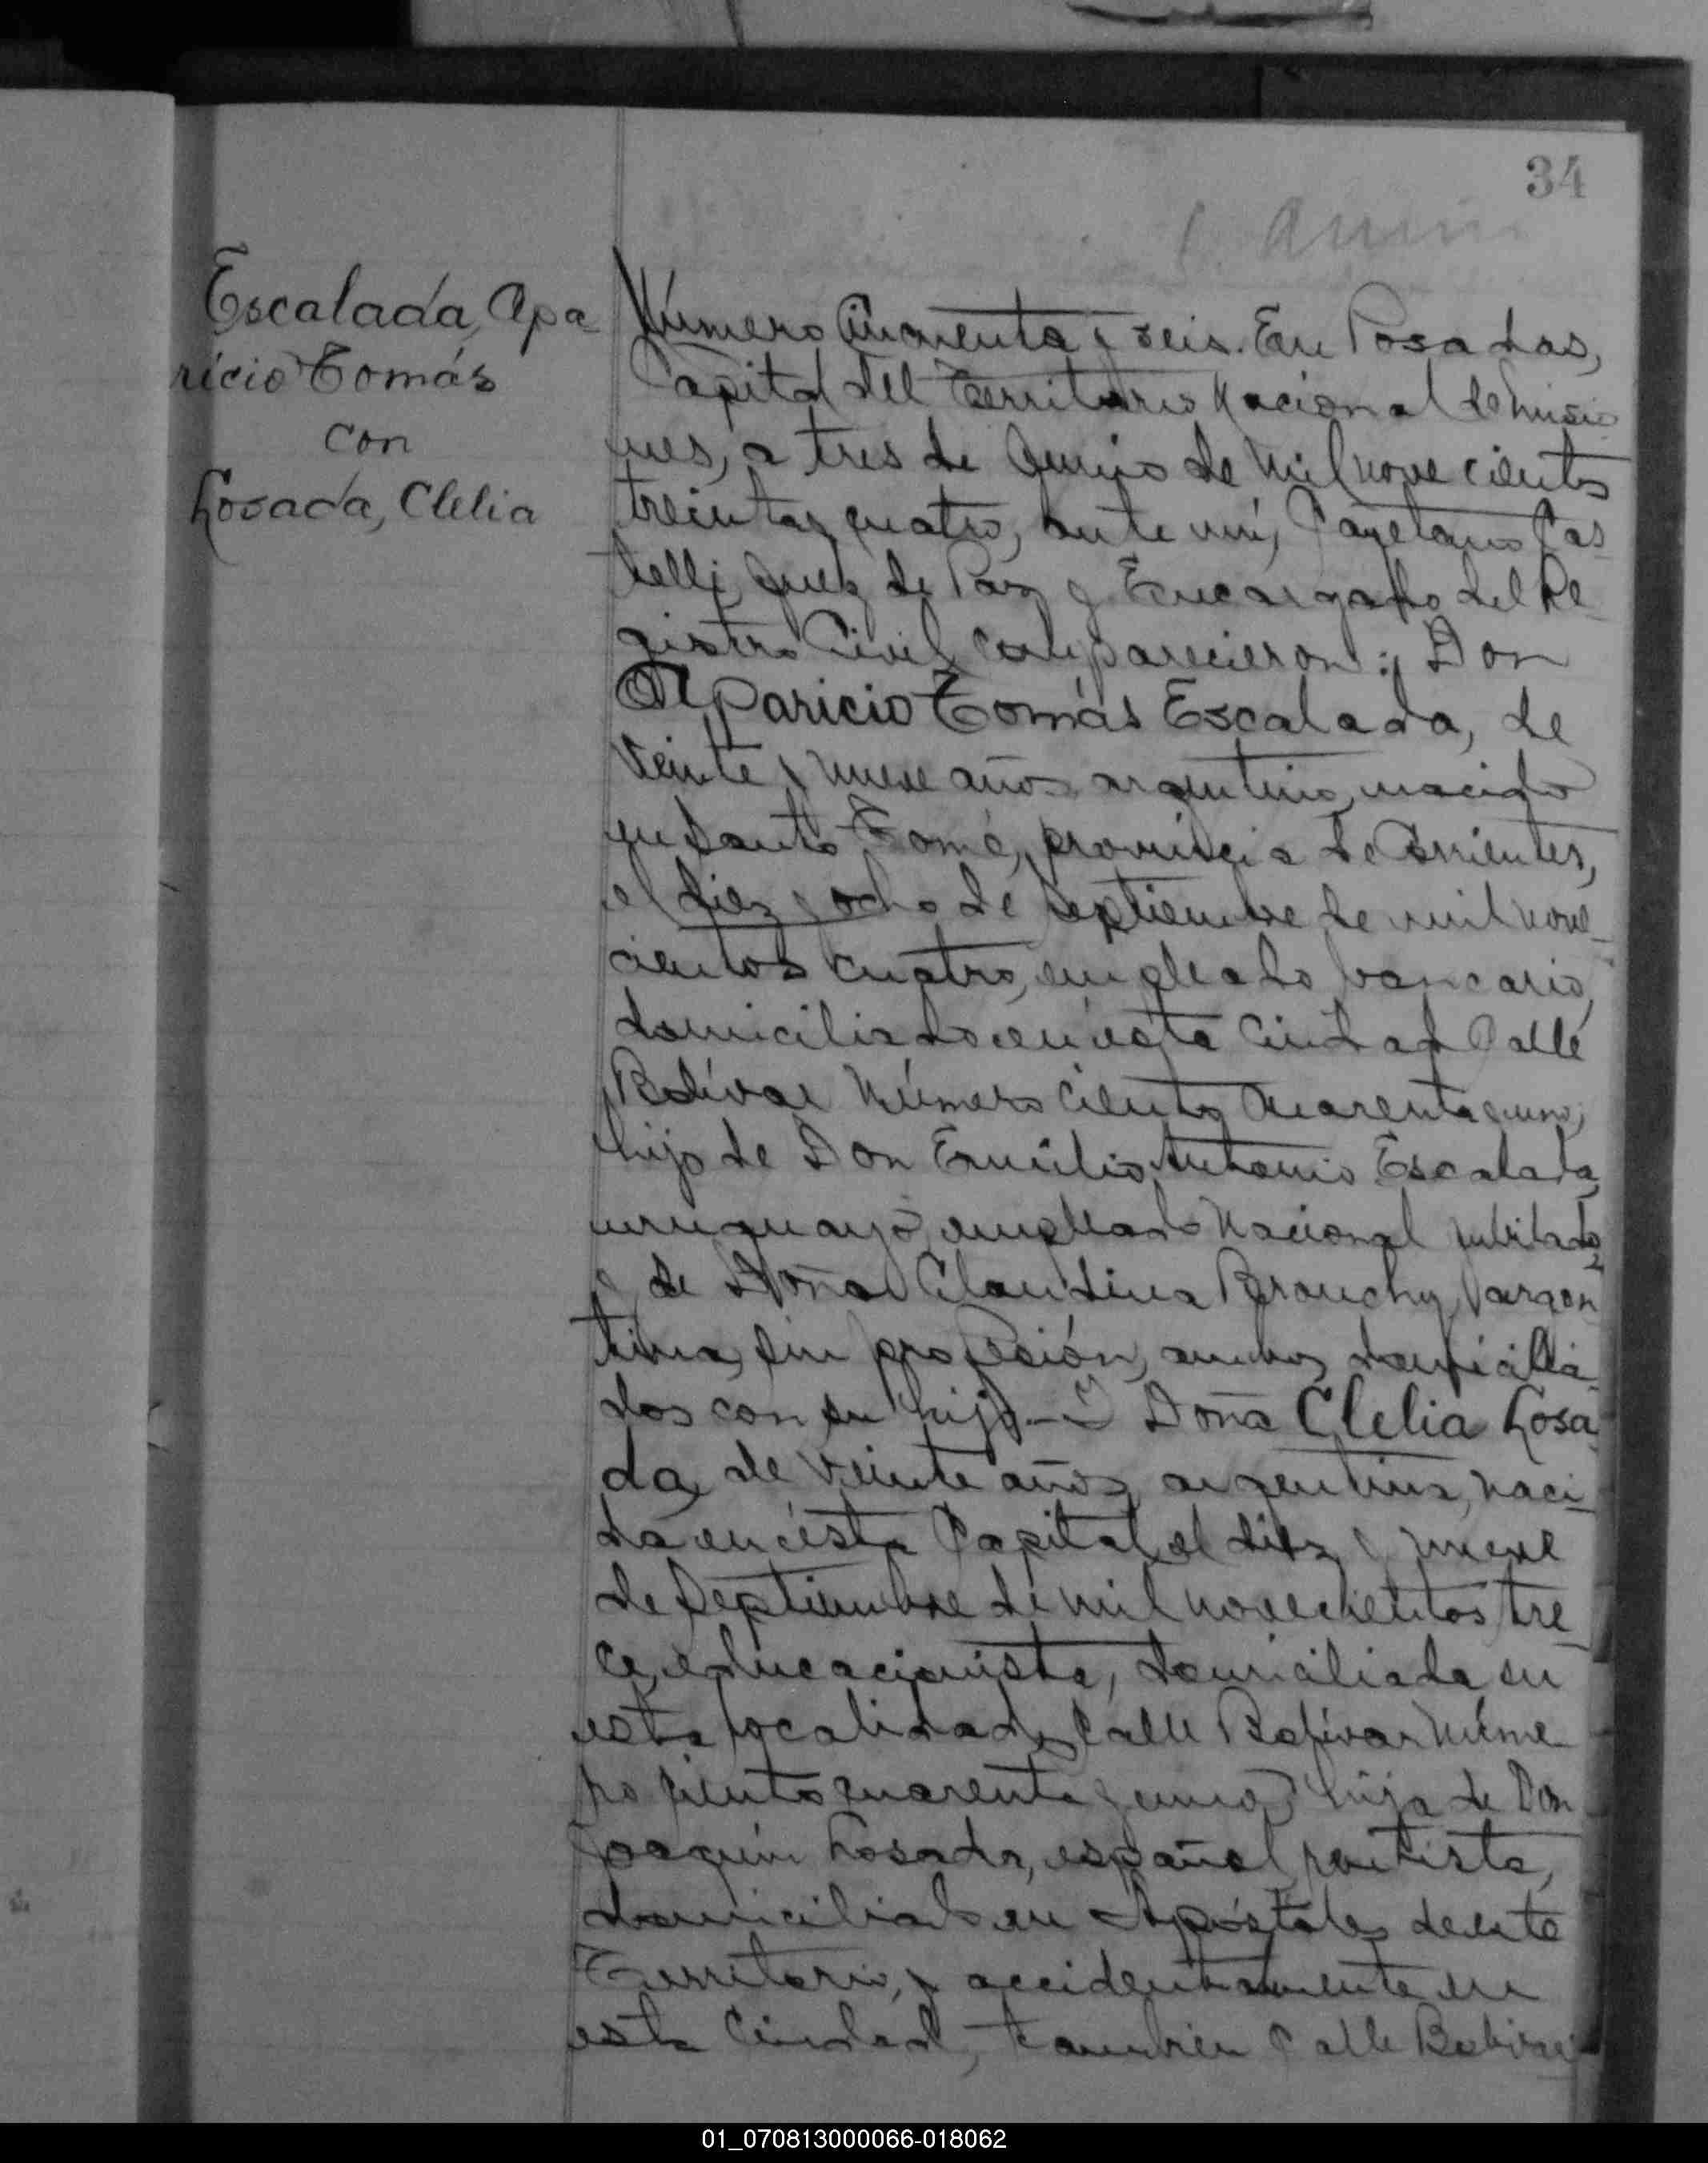 34
Escalada, Apa-
ricio Tomás
con
Losada, Clelia
Número Cincuenta y seis. En Posadas,
Capital del Territorio Nacional de Misio-
nes, a tres de Junio de Mil novecientos
treinta y cuatro, ante mí, Cayetano Cas-
telli, Juez de Paz y Encargado del Re-
gistro Civil, comparecieron: Don
Aparicio Tomás Escalada, de
veinte y nueve años, argentino, nacido
en Santo Tomé, provincia de Corrientes,
el diez y ocho de Septiembre de mil nove-
cientos cuatro, empleado bancario,
domiciliado en ésta Ciudad Calle
Bolívar Número Ciento Cuarenta y uno,
hijo de Don Emilio Antonio Escalada,
uruguayo, empleado Nacional jubilado,
y de Doña Claudina Brouchy, argen-
tina, sin profesión, ambos domicilia-
dos con su hijo.- Y Doña Clelia Losa-
da, de veinte años, argentina, naci-
da en ésta Capital el diez y nueve
de Septiembre de mil novecientos tre-
ce, educacionista, domiciliada en
esta localidad, Calle Bolívar Núme-
ro ciento cuarenta y uno, hija de Don
Joaquín Losada, español, rentista,
domiciliado en Apóstoles de este
Territorio, y accidentalmente en
esta Ciudad, también Calle Bolívar
01_070813000066-018062